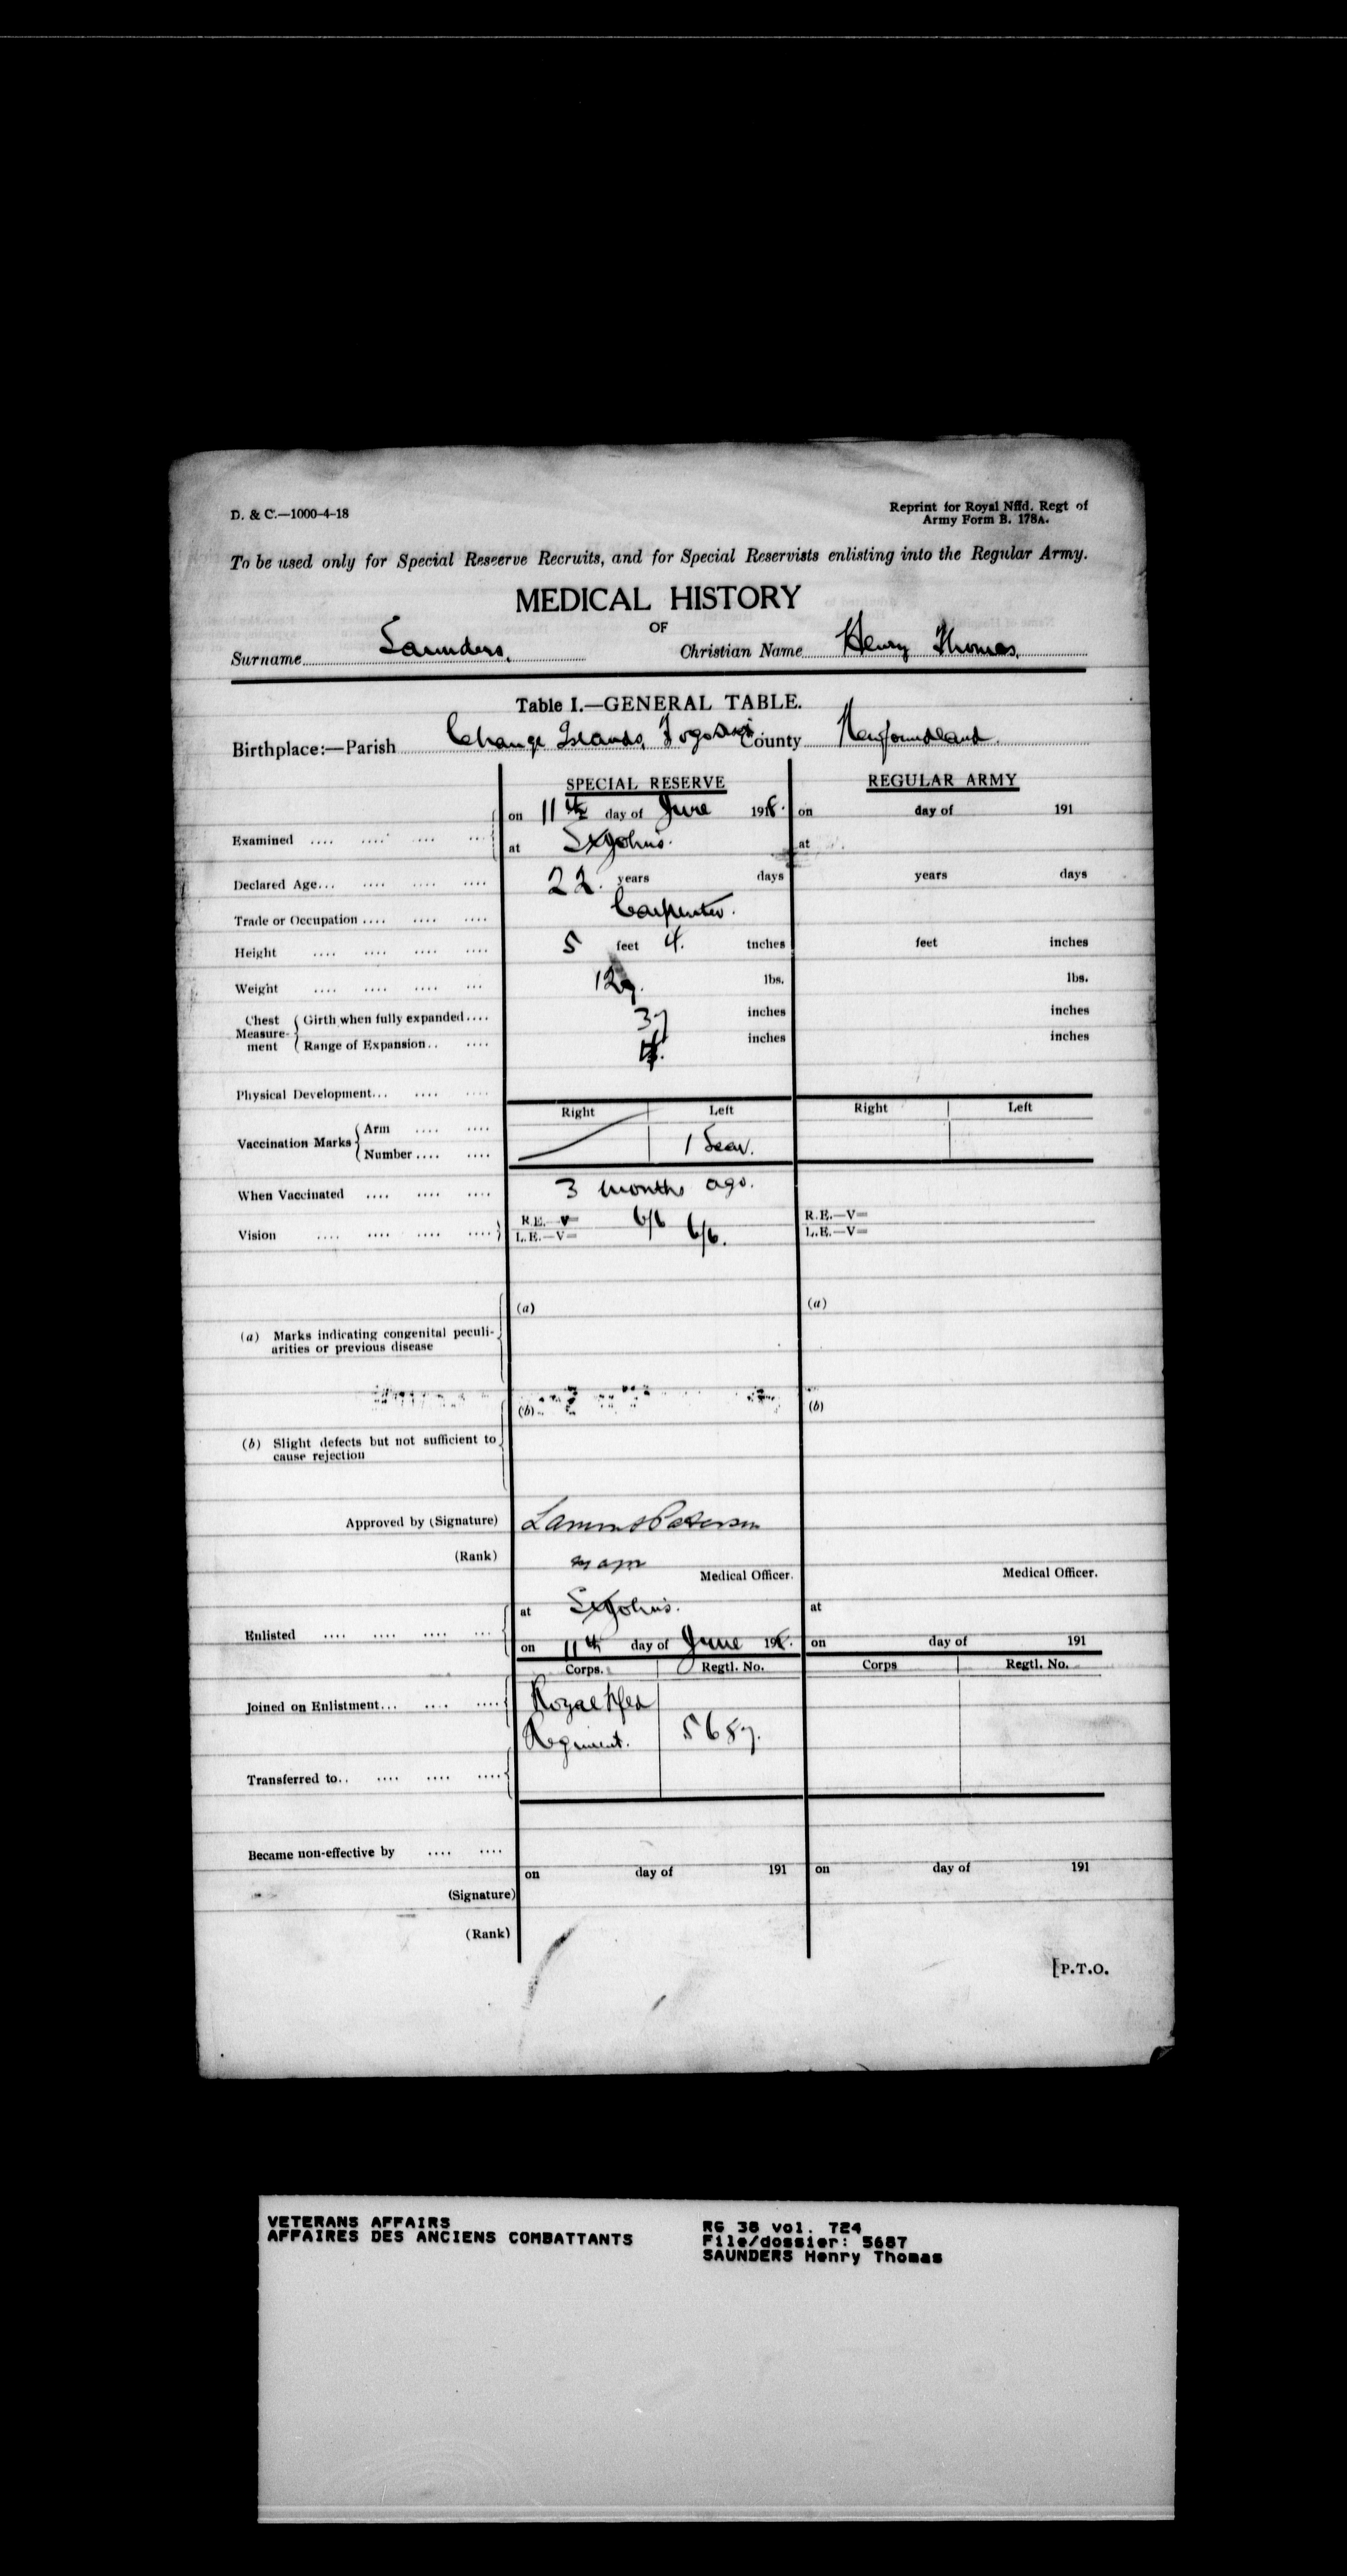 D. & C.—1000-4-18
Reprint for Royal Nfld. Regt of
Army Form B. 178A.
To be used only for Special Reserve Recruits, and for Special Reservists enlisting into the Regular Army.
MEDICAL HISTORY
OF
Surname Saunders. Christian Name Henry Thomas.
Table I.—GENERAL TABLE.
Birthplace:—Parish Change Islands, Fogo County Newfoundland
SPECIAL RESERVE REGULAR ARMY
on 11th day of June 1918. on day of 191
Examined .... .... .... ....
at St John's. at
Declared Age... .... .... .... 22. years days years days
Trade or Occupation .... .... .... Carpenter.
Height .... .... .... .... 5 feet 4. inches feet inches
Weight .... .... .... ... 129. lbs. lbs.
Chest Measurement Girth when fully expanded.... 37 inches inches
Range of Expansion.. .... inches inches
Physical Development... .... ....
Right Left Right Left
Vaccination Marks Arm .... ....
Number .... .... 1 Scar.
When Vaccinated .... .... .... 3 months ago.
Vision .... .... .... .... R.E.—V= 6/6 R.E.—V=
L.E.—V= 6/6. L.E.—V=
(a) (a)
(a) Marks indicating congenital peculi-
arities or previous disease
(b) (b)
(b) Slight defects but not sufficient to
cause rejection
Approved by (Signature) Lamont Paterson
(Rank) Major
Medical Officer. Medical Officer.
at St John's. at
Enlisted .... .... .... ...
on 11th day of June 1918. on day of 191
Corps. Regtl. No. Corps Regtl. No.
Joined on Enlistment... .... .... Royal Nfld
Regiment. 5687.
Transferred to.. .... .... ....
Became non-effective by .... ....
on day of 191 on day of 191
(Signature)
(Rank)
[P.T.O.
VETERANS AFFAIRS RG 38 vol. 724
AFFAIRES DES ANCIENS COMBATTANTS File/dossier: 5687
SAUNDERS Henry Thomas